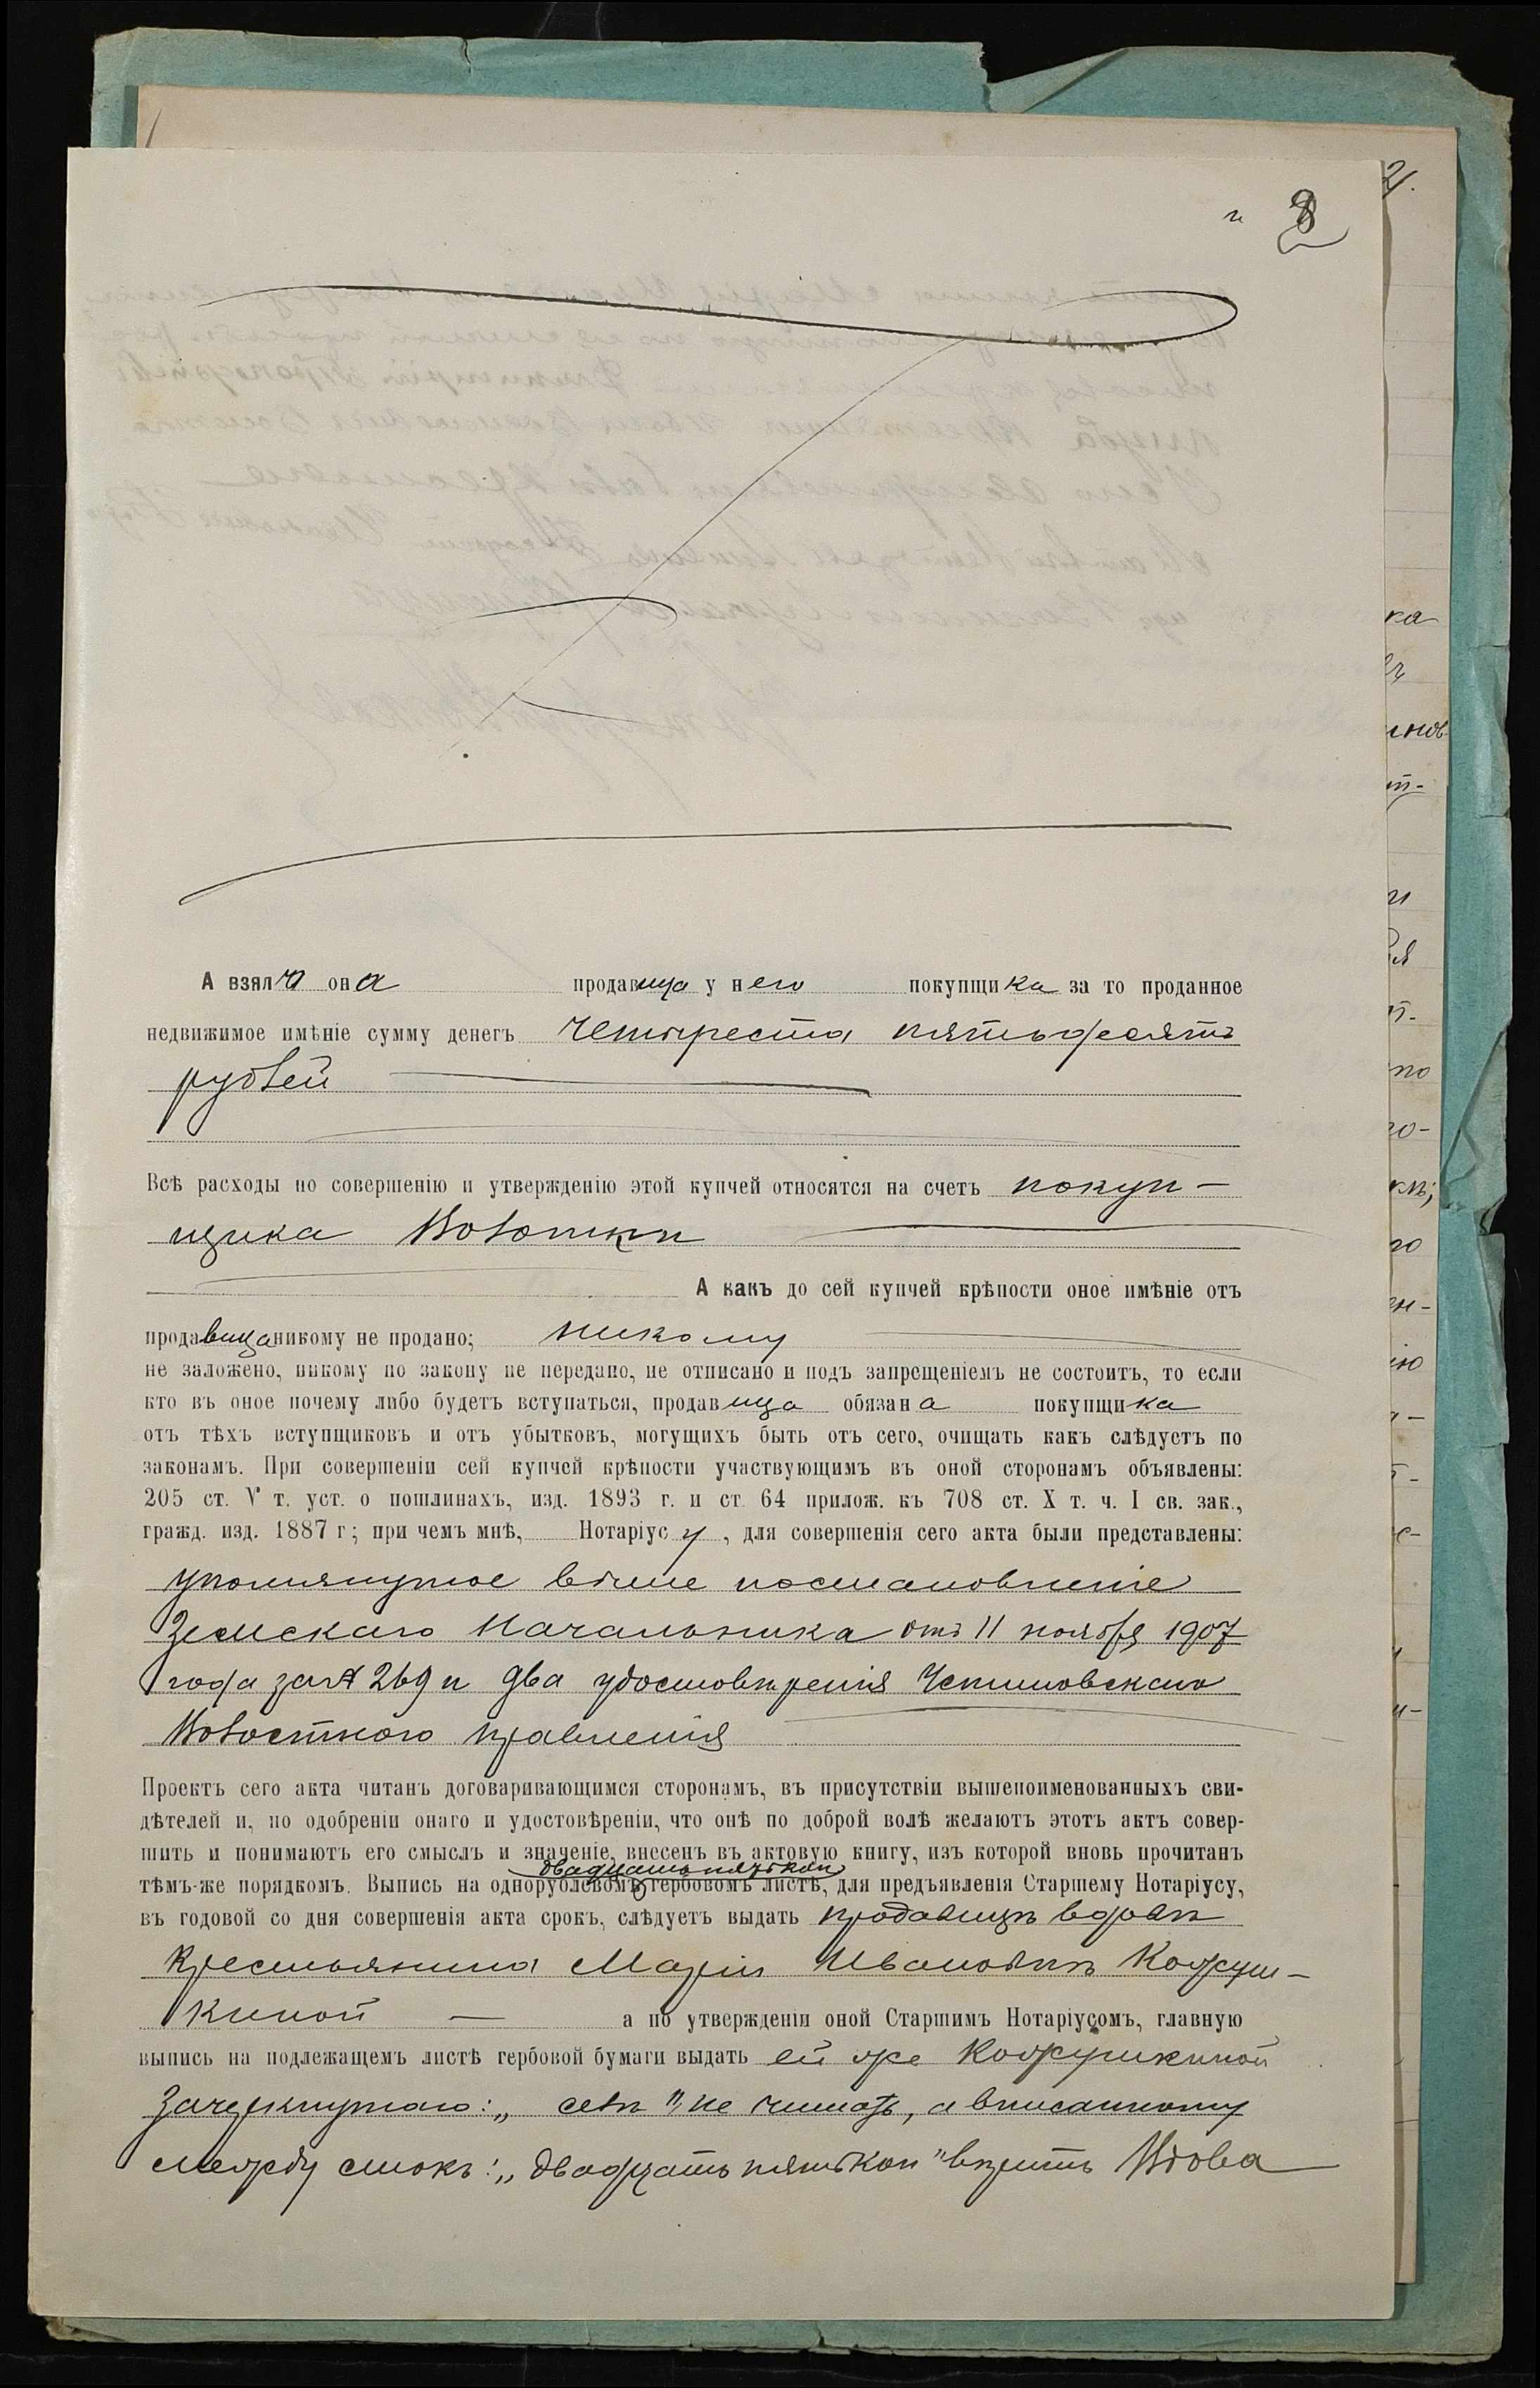 и 8
А взяла она продавица у него покупщика за то проданное
недвижимое имѣніе сумму денегъ четыреста пятьдесятъ
рублей
Всѣ расходы по совершенію и утвержденію этой купчей относятся на счетъ покуп-
щика
А какъ до сей купчей крѣпости оное имѣніе отъ
продавица никому не продано; никому
не заложено, никому по закону не передано, не отписано и подъ запрещеніемъ не состоитъ, то если
кто въ оное почему либо будетъ вступаться, продавица обязана покупщика
отъ тѣхъ вступщиковъ и отъ убытковъ, могущихъ быть отъ сего, очищать какъ слѣдуетъ по
законамъ. При совершеніи сей купчей крѣпости участвующимъ въ оной сторонамъ объявлены:
205 ст. V т. уст. о пошлинахъ, изд. 1893 г. и ст. 64 прилож. къ 708 ст. X т. ч. I св. зак.,
гражд. изд. 1887 г; при чемъ мнѣ, Нотаріусу, для совершенія сего акта были представлены:
упомянутое выше постановленіе
Земскаго Начальника отъ 11 ноября 1907
года за № 269 и два удостовѣренія
Волостного Правленія
Проектъ сего акта читанъ договаривающимся сторонамъ, въ присутствіи вышепоименованныхъ сви-
дѣтелей и, по одобреніи онаго и удостовѣреніи, что онѣ по доброй волѣ желаютъ этотъ актъ совер-
шить и понимаютъ его смыслъ и значеніе, внесенъ въ актовую книгу, изъ которой вновь прочитанъ
двадцать пять коп
тѣмъ-же порядкомъ. Выпись на однорублевомъ гербовомъ листѣ, для предъявленія Старшему Нотаріусу,
въ годовой со дня совершенія акта срокъ, слѣдуетъ выдать продавицѣ вдовѣ
крестьянина Маріи Ивановнѣ Кожуш-
киной а по утвержденіи оной Старшимъ Нотаріусомъ, главную
выпись на подлежащемъ листѣ гербовой бумаги выдать ей же Кожушкиной
Зачеркнутаго: „ " не читать, а вписанному
между строкъ: „двадцать пять коп" вѣрить Вдова